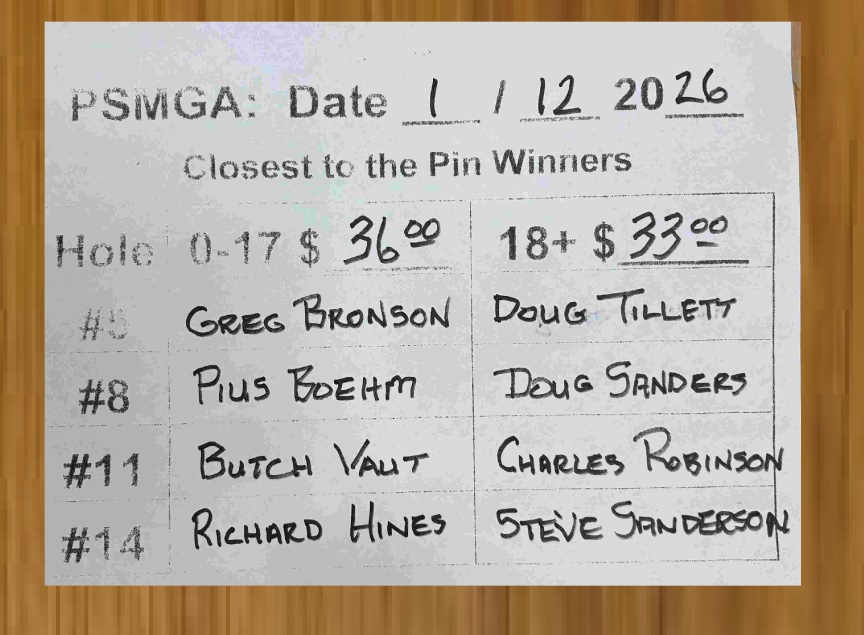 PSMGA: Date 1 / 12 2026
Closest to the Pin Winners
Hole 0-17 $ 36.00 18+ $ 33.00
#5 GREG BRONSON DOUG TILLETT
#8 PIUS BOEHM DOUG SANDERS
#11 BUTCH VAUT CHARLES ROBINSON
#14 RICHARD HINES STEVE SANDERSON